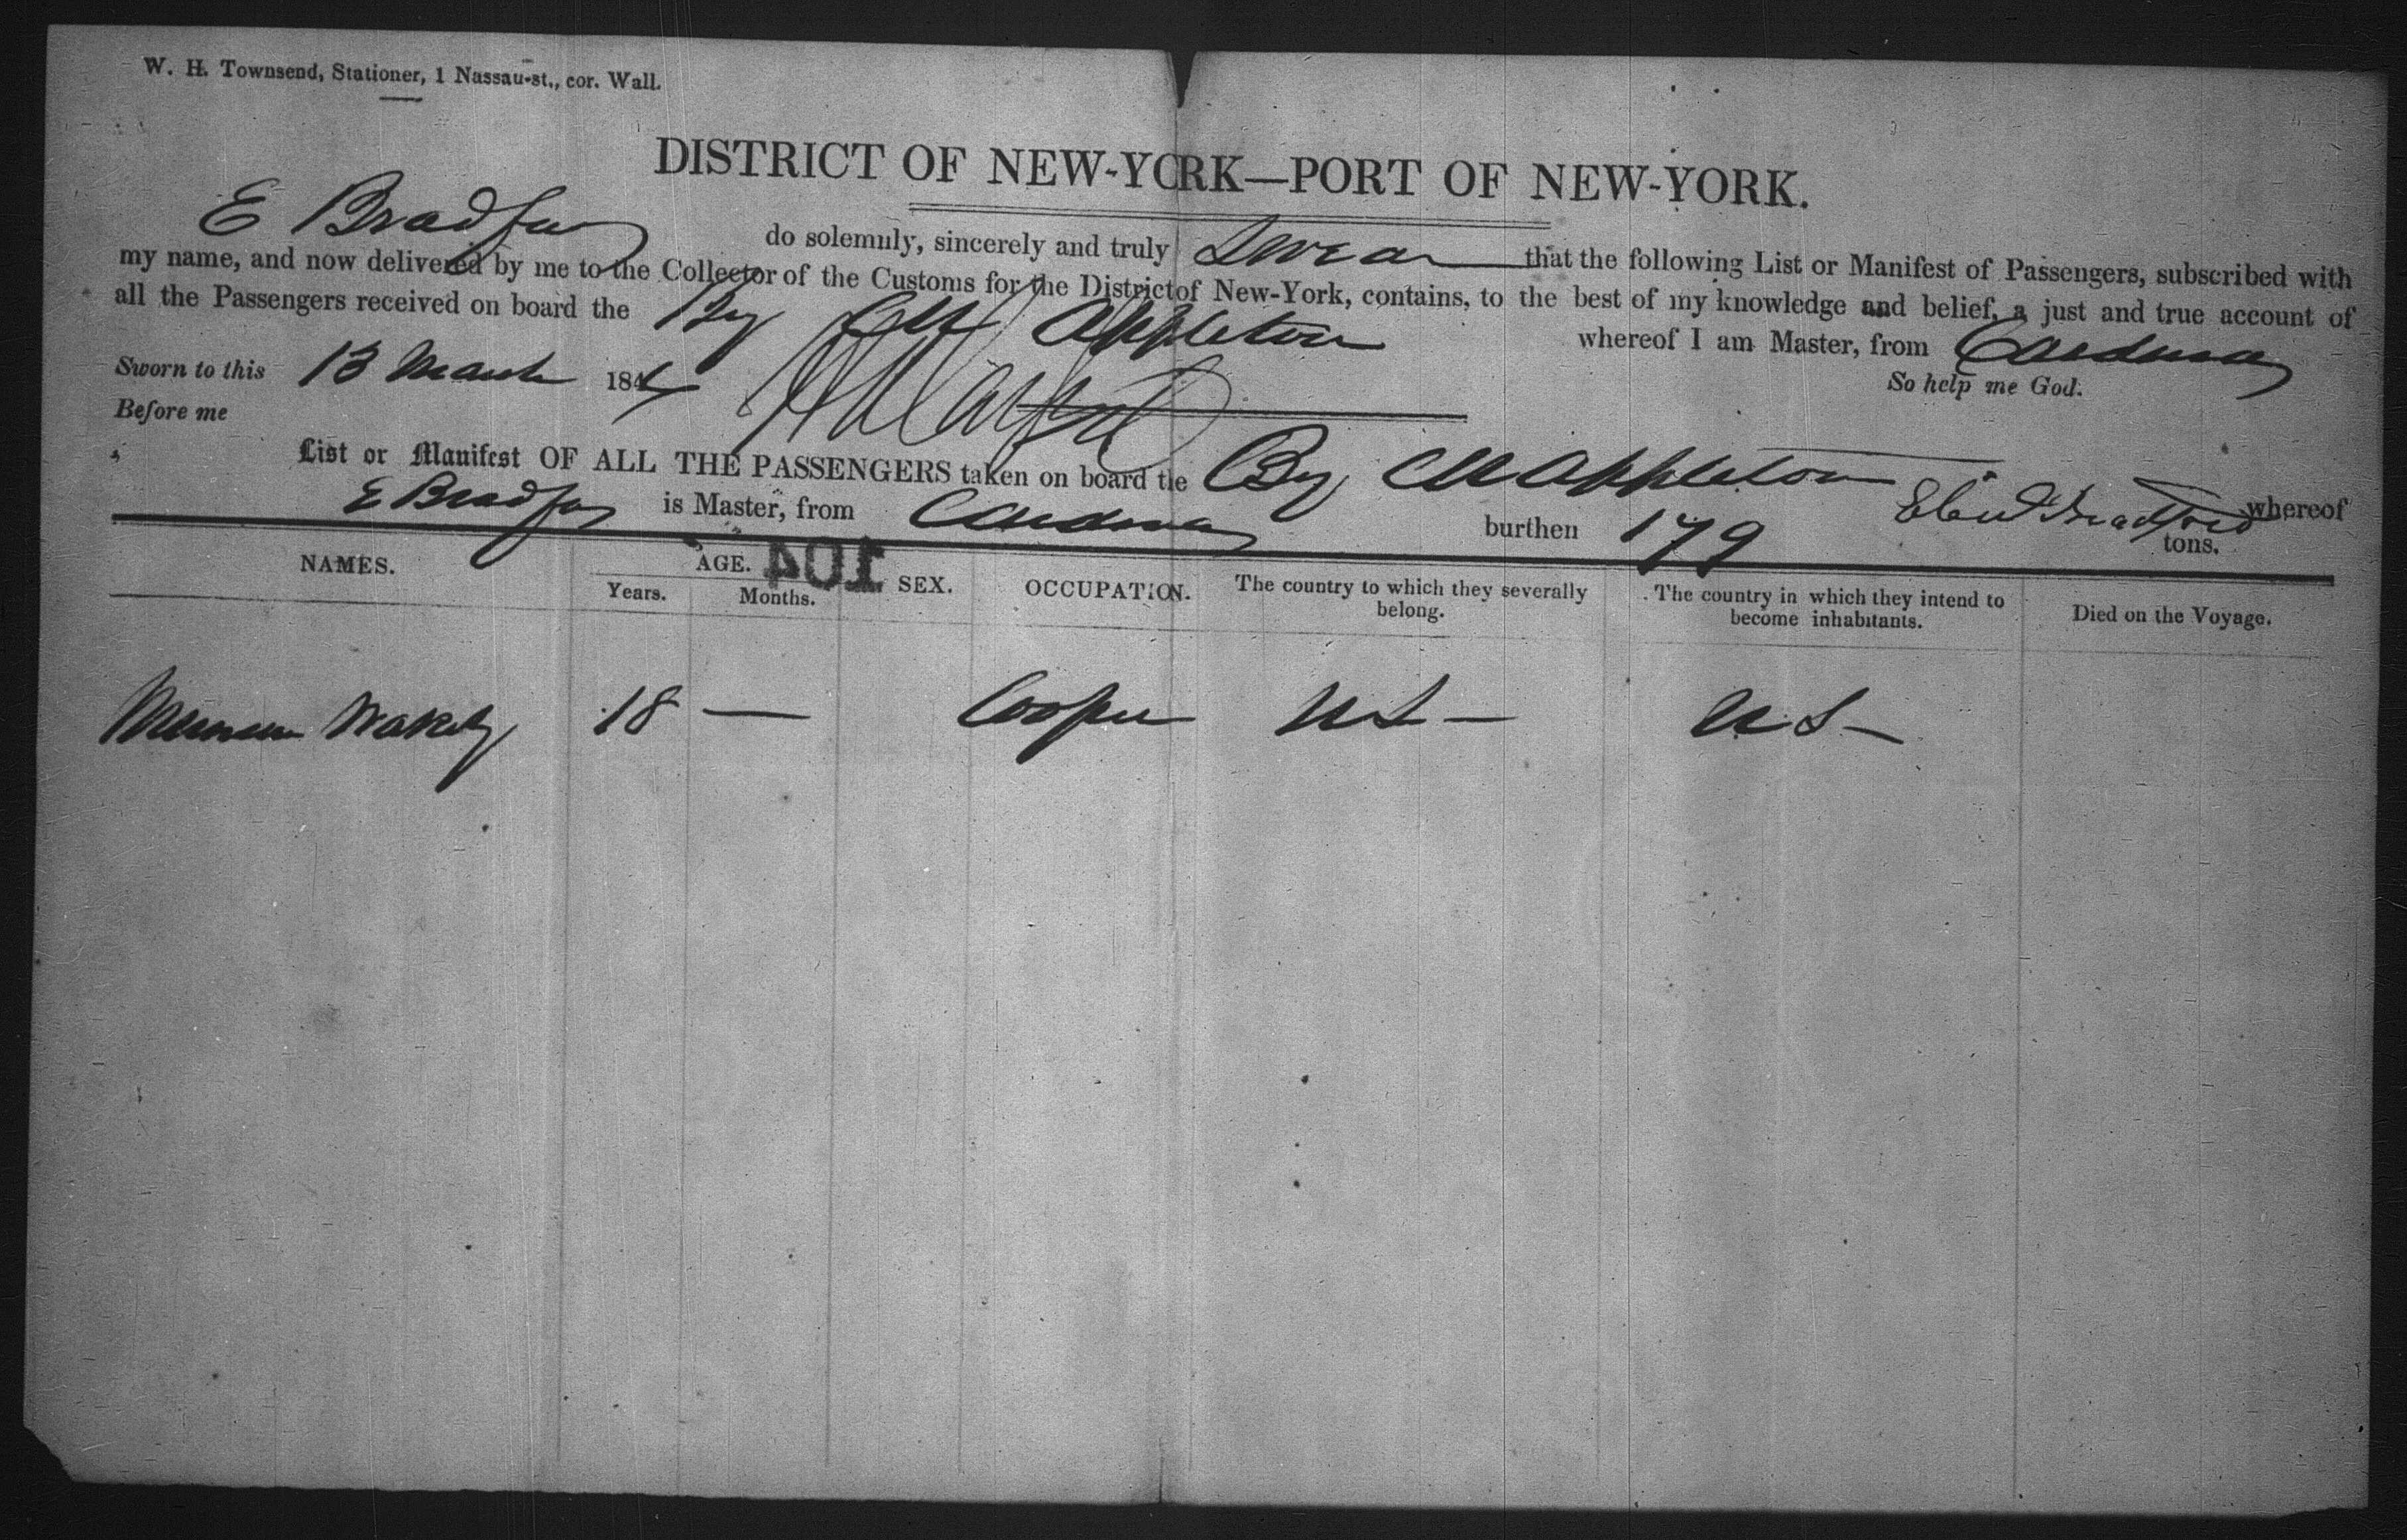 W. H. Townsend, Stationer, 1 Nassau-st., cor. Wall.
DISTRICT OF NEW-YORK—PORT OF NEW-YORK.
E Bradford do solemnly, sincerely and truly Swear that the following List or Manifest of Passengers, subscribed with
my name, and now delivered by me to the Collector of the Customs for the District of New-York, contains, to the best of my knowledge and belief, a just and true account of
all the Passengers received on board the Bg Appleton whereof I am Master, from Cardenas
Sworn to this 13 March 184 So help me God.
Before me
List or Manifest OF ALL THE PASSENGERS taken on board the Bg Appleton whereof
E Bradford is Master, from Cardenas burthen 179 tons.
104
NAMES. AGE. SEX. OCCUPATION. The country to which they severally belong. The country in which they intend to become inhabitants. Died on the Voyage.
Years. Months.
Wakely 18 — Cooper U S — U S —